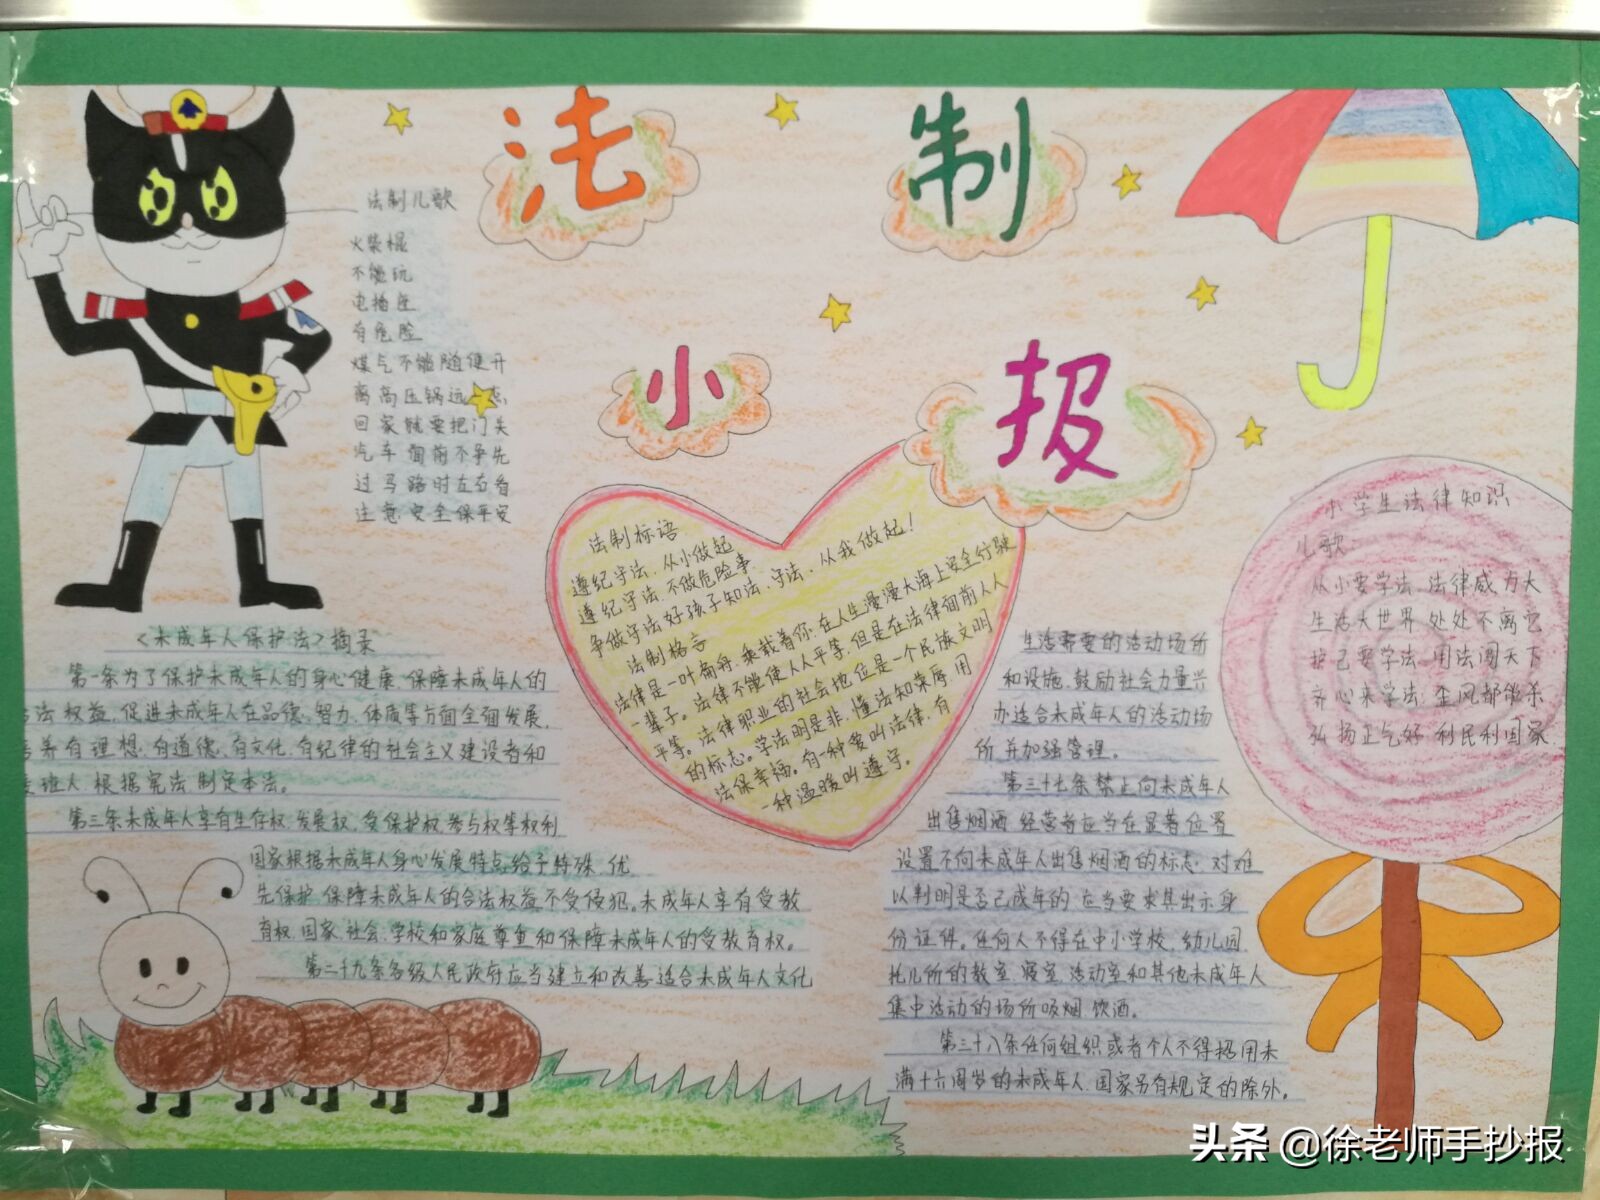 法制
小报
法制儿歌
火柴棍
不能玩
电插座
有危险
煤气不能随便开
离高压锅远点
回家就要把门关
汽车面前不争先
过马路时左右看
注意安全保平安
《未成年人保护法》摘录
第一条为了保护未成年人的身心健康,保障未成年人的
法权益,促进未成年人在品德、智力、体质等方面全面发展,
养有理想、有道德、有文化、有纪律的社会主义建设者和
班人,根据宪法,制定本法。
第三条未成年人享有生存权、发展权、受保护权、参与权等权利
国家根据未成年人身心发展特点给予特殊、优
先保护,保障未成年人的合法权益不受侵犯。未成年人享有受教
育权,国家、社会、学校和家庭尊重和保障未成年人的受教育权。
第二十九条各级人民政府应当建立和改善适合未成年人文化
法制标语
遵纪守法,从小做起
遵纪守法,不做危险事
争做守法好孩子知法、守法、从我做起!
法制格言
法律是一叶扁舟,乘载着你,在人生漫漫大海上安全行驶
一辈子。法律不能使人人平等,但是在法律面前人人
平等。法律职业的社会地位是一个民族文明
的标志。学法明是非,懂法知荣辱,用
法保幸福。有一种爱叫法律,有
一种温暖叫遵守。
生活需要的活动场所
和设施,鼓励社会力量兴
办适合未成年人的活动场
所,并加强管理。
第三十七条禁止向未成年人
出售烟酒,经营者应当在显著位置
设置不向未成年人出售烟酒的标志,对难
以判明是否已成年的,应当要求其出示身
份证件。任何人不得在中小学校、幼儿园
托儿所的教室、寝室、活动室和其他未成年人
集中活动的场所吸烟、饮酒。
第三十八条任何组织或者个人不得招用未
满十六周岁的未成年人,国家另有规定的除外。
小学生法律知识
儿歌
从小要学法,法律威力大
生活大世界,处处不离它
护己要学法,用法闯天下
齐心来学法,歪风都能杀
弘扬正气好,利民利国家
头条 @徐老师手抄报